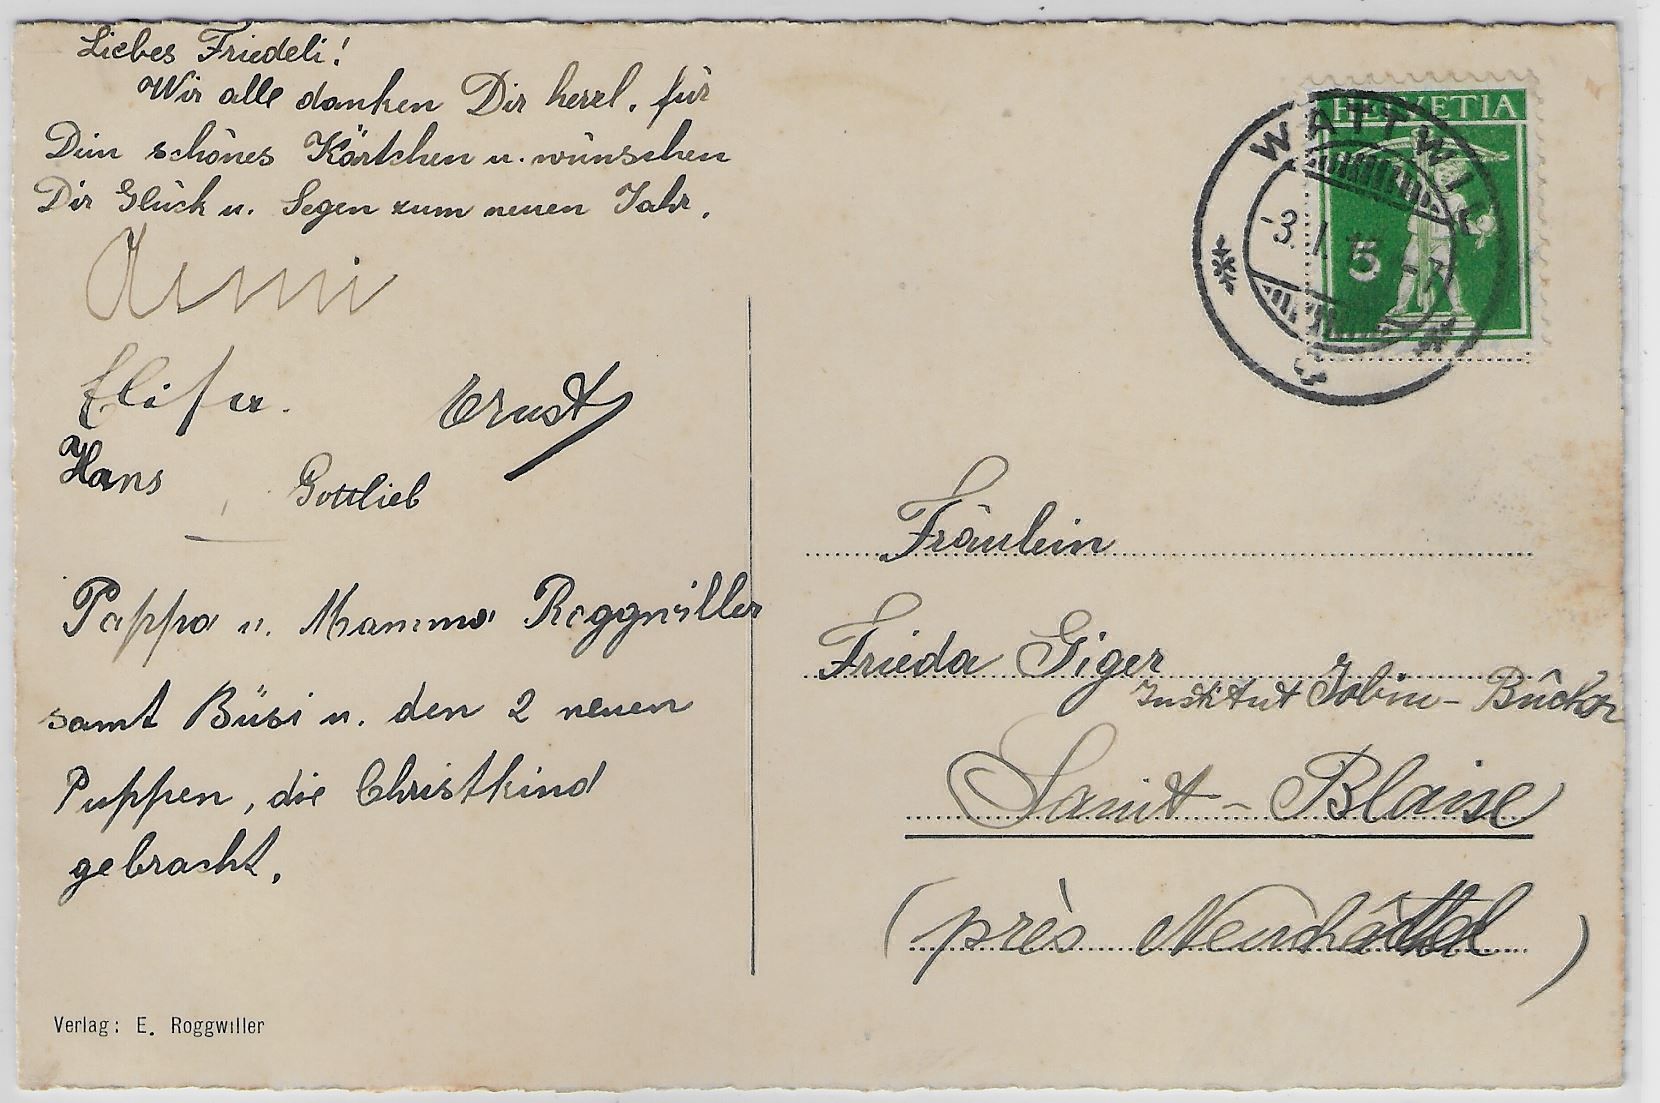 Liebes Friedeli!
Wir alle danken Dir herzl. für
Dein schönes Kärtchen u. wünschen
Dir Glück u. Segen zum neuen Jahr.
Elisa.
Ernst
Hans
Gottlieb
Pappa u. Mamma Roggwiller
samt Büsi u. den 2 neuen
Puppen, die Christkind
gebracht.
Verlag: E. Roggwiller
HELVETIA
5
WATTWIL
-3. I.
Fräulein
Frieda Giger
Institut Jobin-Bücher
Saint-Blaise
(près Neuchâtel)